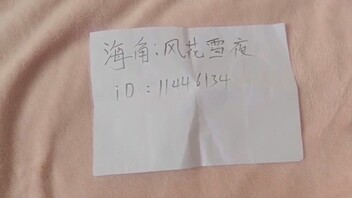 海角:风花雪夜
iD:11446134